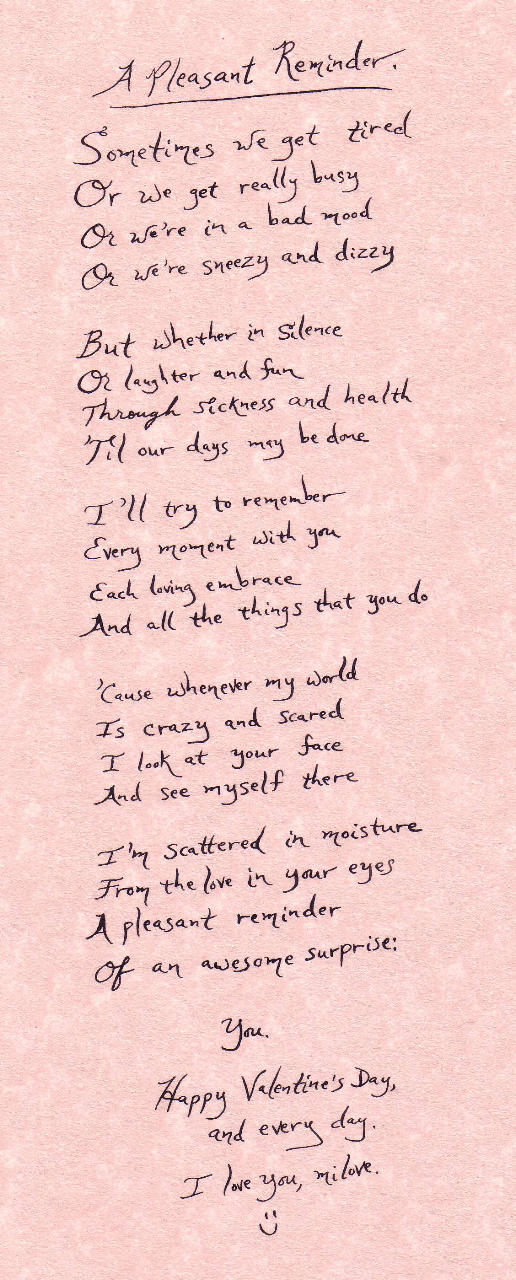 A Pleasant Reminder.
Sometimes we get tired
Or we get really busy
Or we're in a bad mood
Or we're sneezy and dizzy
But whether in silence
Or laughter and fun
Through sickness and health
'Til our days may be done
I'll try to remember
Every moment with you
Each loving embrace
And all the things that you do
'Cause whenever my world
Is crazy and scared
I look at your face
And see myself there
I'm scattered in moisture
From the love in your eyes
A pleasant reminder
Of an awesome surprise:
You.
Happy Valentine's Day,
and every day.
I love you, milove.